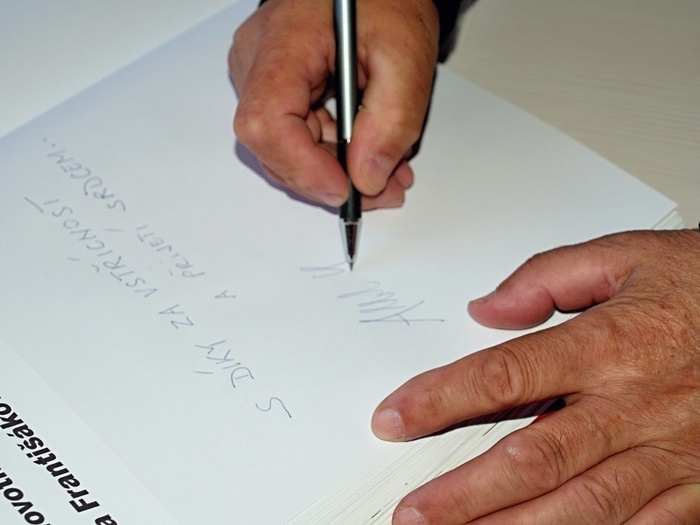 S DÍKY ZA VSTŘÍCNOST
A PŘIJETÍ SRDCEM...
a Františáko